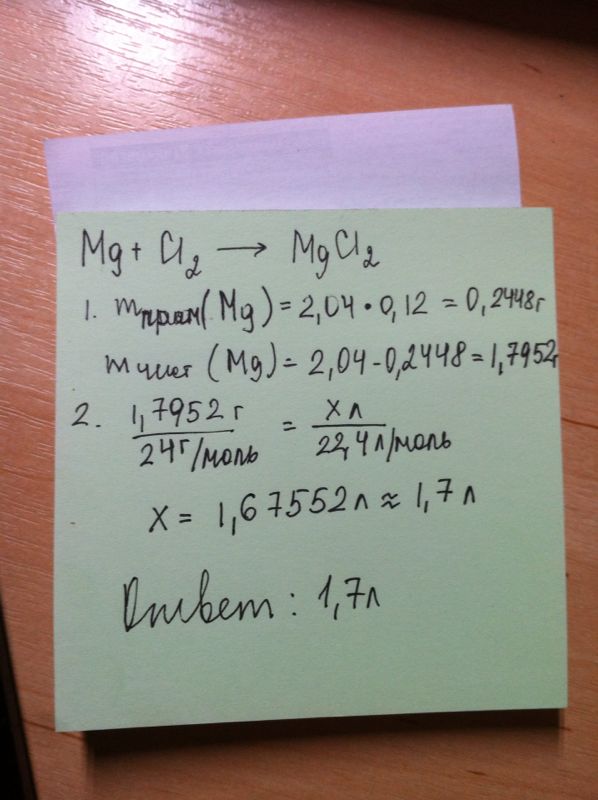 Mg + Cl₂ → MgCl₂
1. mприм(Mg) = 2,04 • 0,12 = 0,2448г
mчист (Mg) = 2,04 - 0,2448 = 1,7952г
2. 1,7952 г / 24 г/моль = X л / 22,4 л/моль
X = 1,67552 л ≈ 1,7 л
Ответ: 1,7л